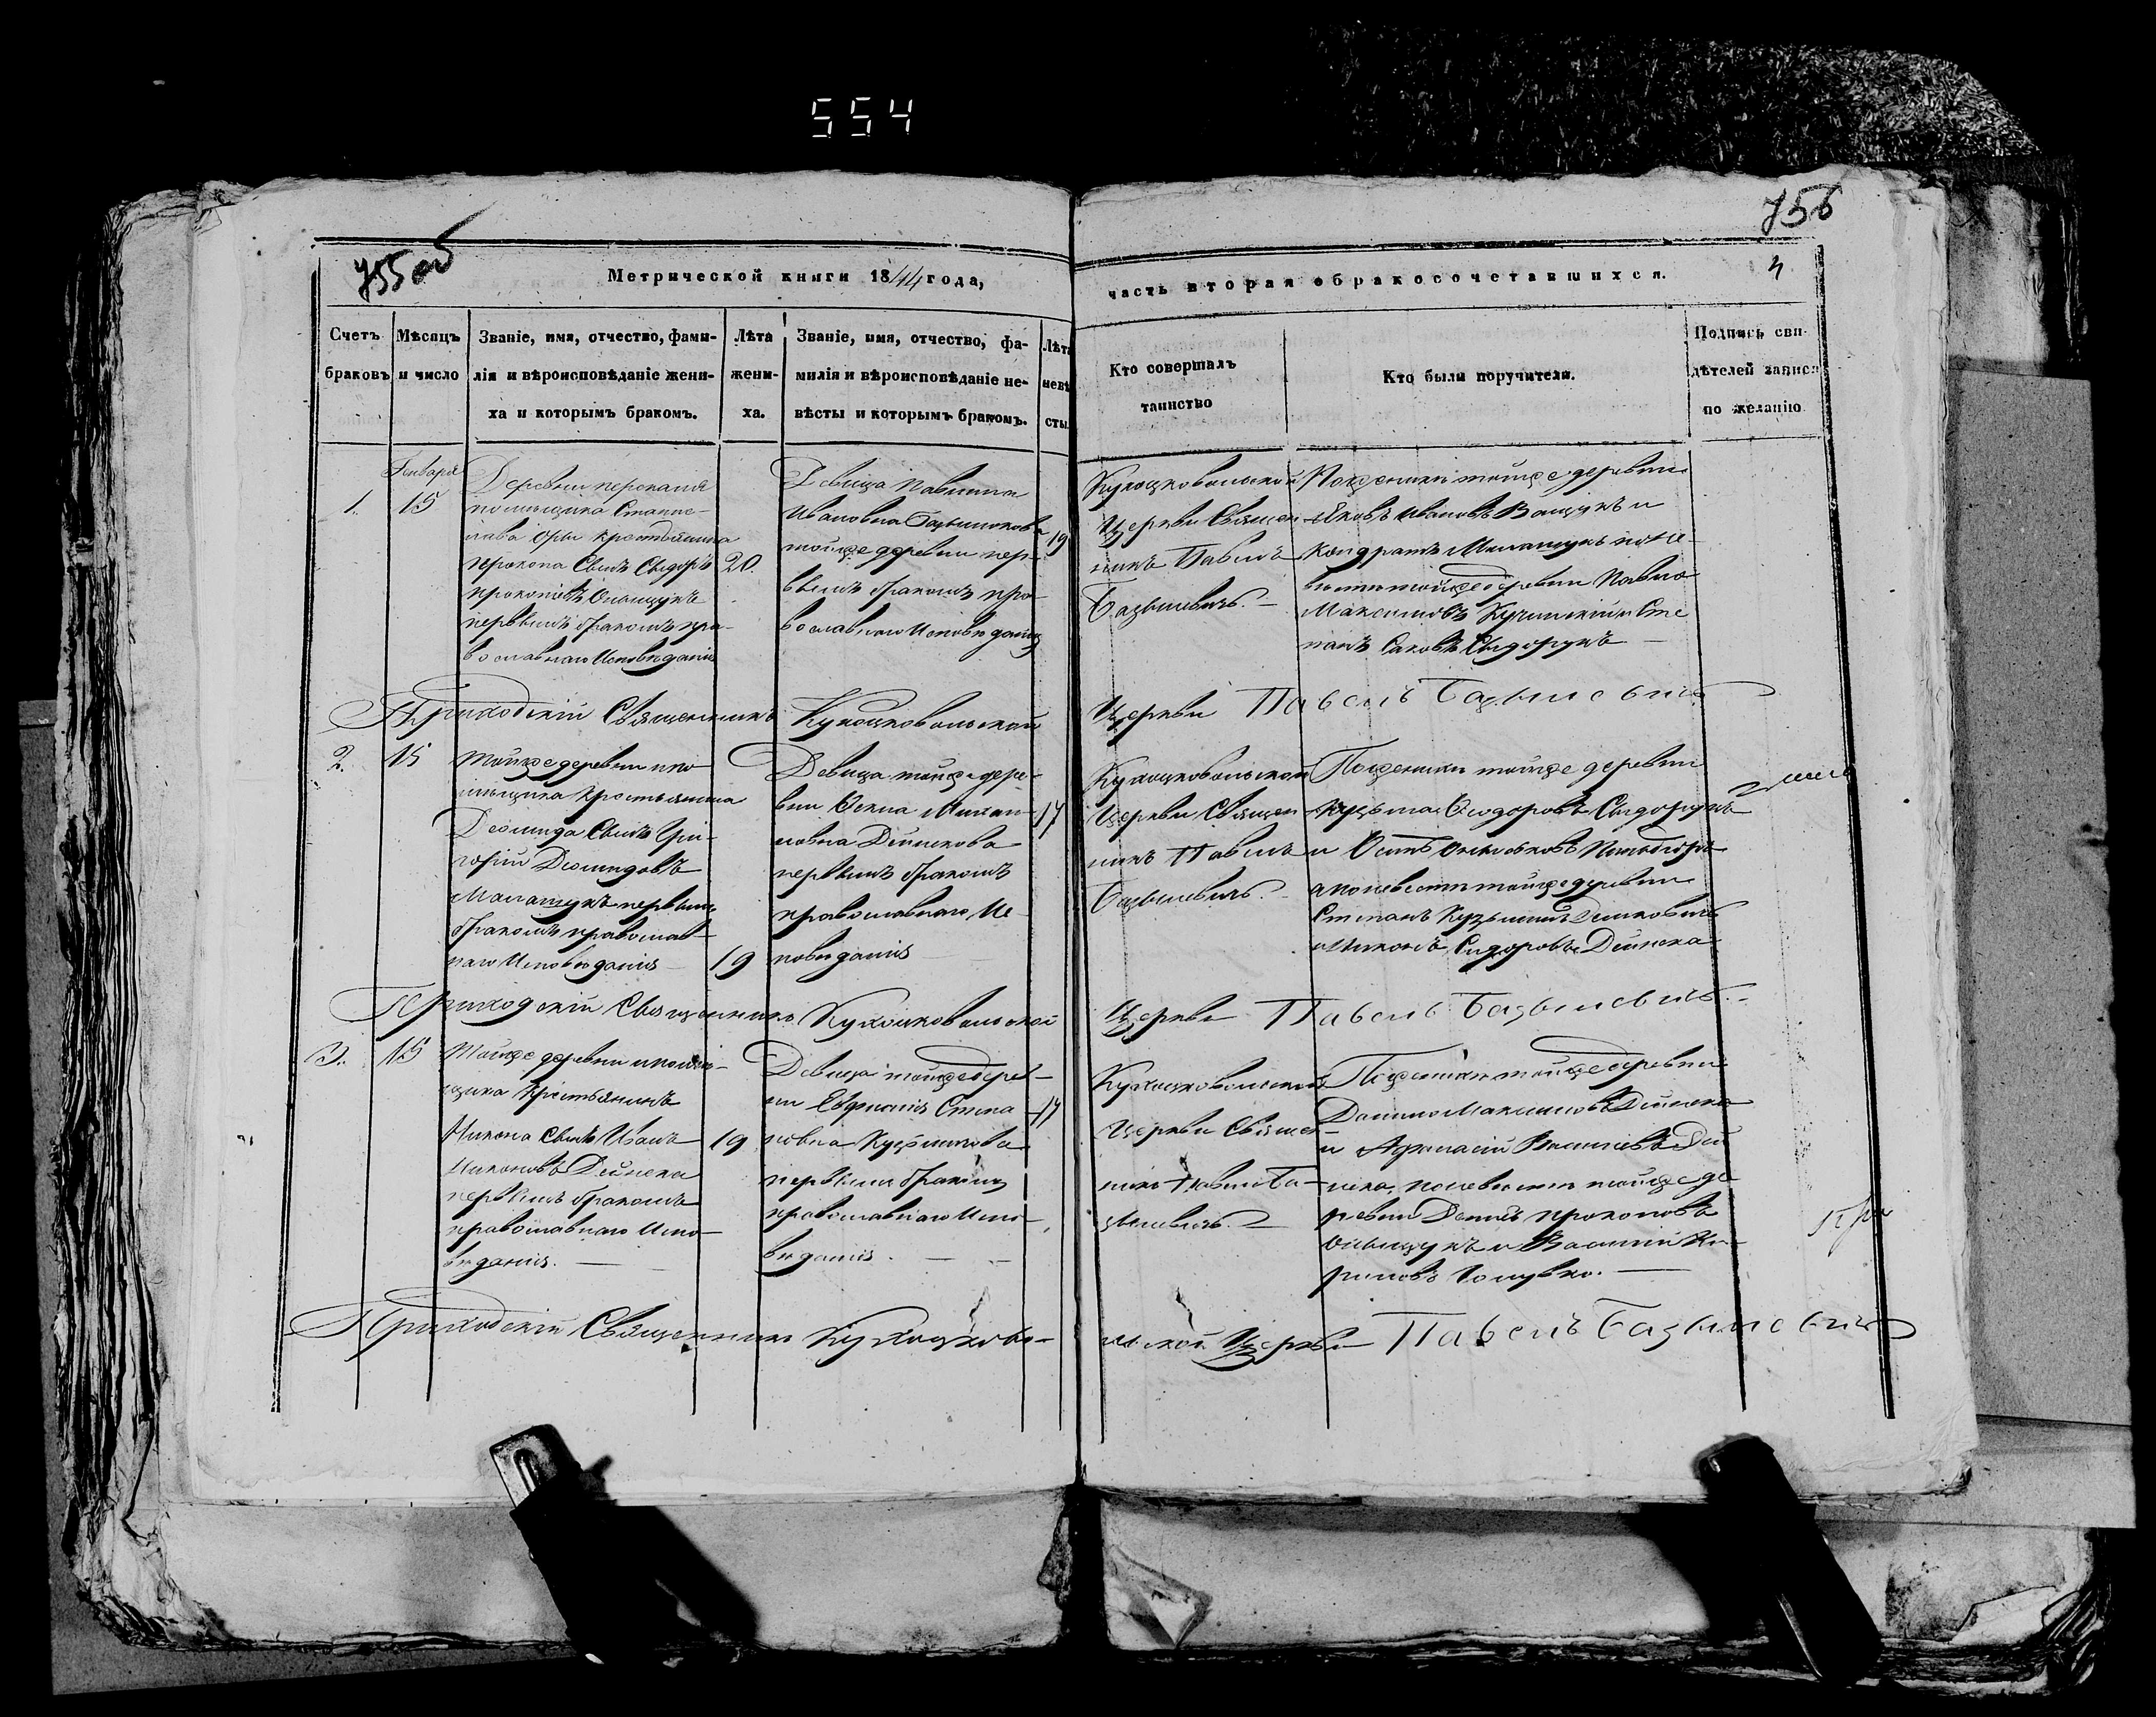 554
755об
756
Метрической книги 1844 года,
часть вторая о бракосочетавшихся.
4
Счетъ
браковъ
Мѣсяцъ
и число
Званіе, имя, отчество, фами-
лія и вѣроисповѣданіе жени-
ха и которымъ бракомъ.
Лѣта
жени-
ха.
Званіе, имя, отчество, фа-
милія и вѣроисповѣданіе не-
вѣсты и которымъ бракомъ.
Лѣта
невѣ
сты.
Кто совершалъ
таинство
Кто были поручители.
Подпись сви-
дѣтелей записи
по желанію
1.
Января
15
Деревни
помѣщика Станис-
лава крестьянина
Прокопа Сынъ Сыдоръ
Прокопіевъ Онищукъ
первымъ бракомъ пра-
вославнаго Исповѣданія
20.
Девица
Ивановна
тойже деревни пер-
вымъ бракомъ пра-
вославнаго Исповѣданія
19
Кухоцковольской
Церкви Священ-
никъ Павелъ
Базылевичь.
По женихи тойже деревни
Яковъ Ивановъ и
Кондратъ по не-
вѣсти тойже деревни Павло
Максимовъ и Сте
панъ Саковъ Сыдорукъ
Приходскій Священникъ Кухоцковольской
Церкви Павелъ Базылевичь
2.
15
Тойже деревни и по
мѣщика Крестьянина
Деомида Сынъ Гри-
горій Деомидовъ
первымъ
бракомъ православ-
наго Исповѣданія
19
Девица тойже дере-
вни
Дейнекова
первымъ бракомъ
православнаго Ис-
повѣданія
17
Кухоцковольской
Церкви Священ-
никъ Павелъ
Базылевичь.
По женихи тойже деревни
Кузьма Ѳеодоровъ Сыдорукъ
и
а по невести тойже деревни
Степанъ Кузьминъ
и Никонъ Сидоровъ Дейнека
Приходскій Священникъ Кухоцковольской
Церкви Павелъ Базылевичь.
3.
15
Тойже деревни и помѣ-
щика Крестьянинъ
Никона Сынъ Иванъ
Никоновъ Дейнека
первымъ бракомъ
православнаго Испо-
вѣданія.
19
Девица тойже дерев-
ни Евфимія Степа-
новна
первымъ бракомъ
православнаго Испо-
вѣданія.
17
Кухоцковольской
Церкви Священ-
никъ Павелъ Ба-
зылевичь.
По женихи тойже деревни
Данило Максимовъ Дейнека
и Афанасій Васильевъ Дей
нека, по невести тойже де
ревни Прокоповъ
Онищукъ и Василій Ки-
риловъ
Приходскій Священникъ Кухоцково-
льской Церкви Павелъ Базылевичь